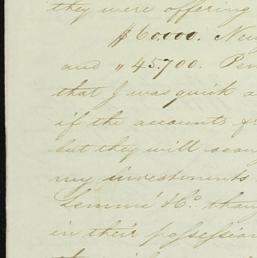 they were offering
$60.000. New
and " 45.700. Pen
that I was quick a
if the accounts &
but they will soon
my investments
Lemmi & Co. than
in their possession